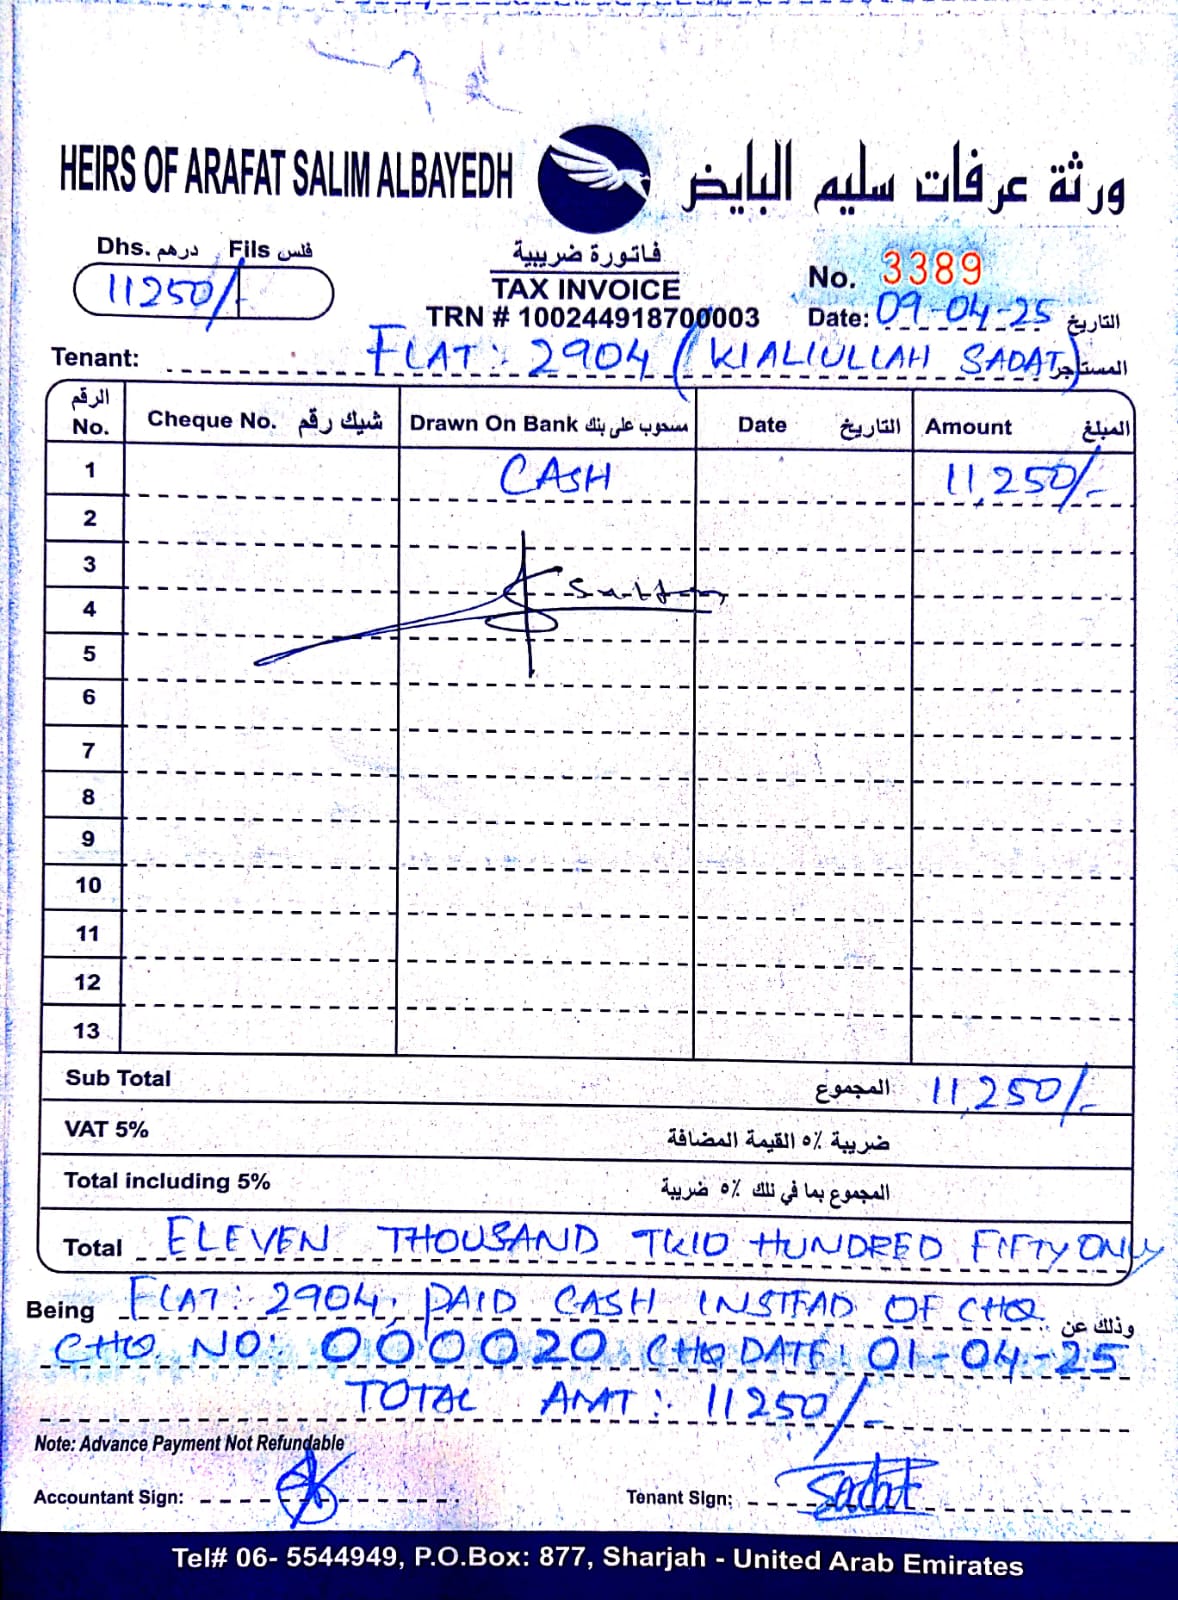 HEIRS OF ARAFAT SALIM ALBAYEDH ورثة عرفات سليم البايض
Dhs. درهم Fils فلس
11250/-
فاتورة ضريبية
TAX INVOICE
TRN # 100244918700003
No. 3389
Date: 09-04-25 التاريخ
Tenant: FLAT: 2904 (KIALIULLAH SADAT) المستاجر
الرقم No. Cheque No. شيك رقم Drawn On Bank مسحوب على بنك Date التاريخ Amount المبلغ
1 CASH 11,250/-
2
3
4
5
6
7
8
9
10
11
12
13
Sub Total المجموع 11,250/-
VAT 5% ضريبة ٥٪ القيمة المضافة
Total including 5% المجموع بما في ذلك ٥٪ ضريبة
Total ELEVEN THOUSAND TWO HUNDRED FIFTY ONLY
Being FLAT: 2904, PAID CASH INSTEAD OF CHQ وذلك عن
CHQ. NO: 000020 CHQ DATE: 01-04-25
TOTAL AMT: 11250/-
Note: Advance Payment Not Refundable
Accountant Sign: Tenant Sign: Sadat
Tel# 06- 5544949, P.O.Box: 877, Sharjah - United Arab Emirates